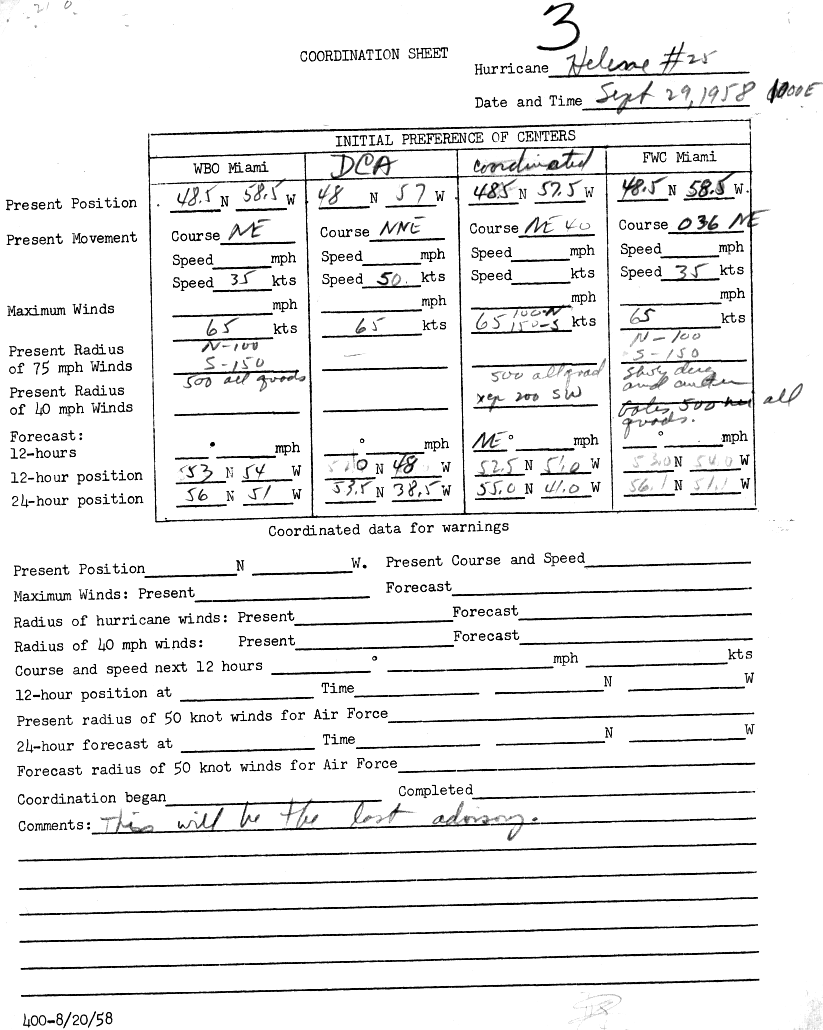 3
COORDINATION SHEET
Hurricane Helene #25
Date and Time Sept 29, 1958 1000E
INITIAL PREFERENCE OF CENTERS
WBO Miami DCA coordinated FWC Miami
Present Position 48.5 N 58.5 W 48 N 57 W 48.5 N 57.5 W 48.5 N 58.5 W.
Present Movement Course NE Course NNE Course NE 40 Course 036 NE
Speed mph Speed mph Speed mph Speed mph
Speed 35 kts Speed 50. kts Speed kts Speed 35 kts
Maximum Winds mph mph mph mph
65 kts 65 kts 65 100-N 150-S kts 65 kts
Present Radius N-100 N-100
of 75 mph Winds S-150 — S-150
Present Radius 500 all quads 500 all quad
of 40 mph Winds xcp 200 SW Gales 500 all quads.
Forecast:
12-hours ° mph ° mph NE ° mph ° mph
12-hour position 53 N 54 W N 48 W 52.5 N 51.0 W 53.0 N 54.0 W
24-hour position 56 N 51 W 53.5 N 38.5 W 55.0 N 41.0 W 56.1 N 51.1 W
Coordinated data for warnings
Present Position N W. Present Course and Speed
Maximum Winds: Present Forecast
Radius of hurricane winds: Present Forecast
Radius of 40 mph winds: Present Forecast
Course and speed next 12 hours ° mph kts
12-hour position at Time N W
Present radius of 50 knot winds for Air Force
24-hour forecast at Time N W
Forecast radius of 50 knot winds for Air Force
Coordination began Completed
Comments: This will be the last advisory.
400-8/20/58